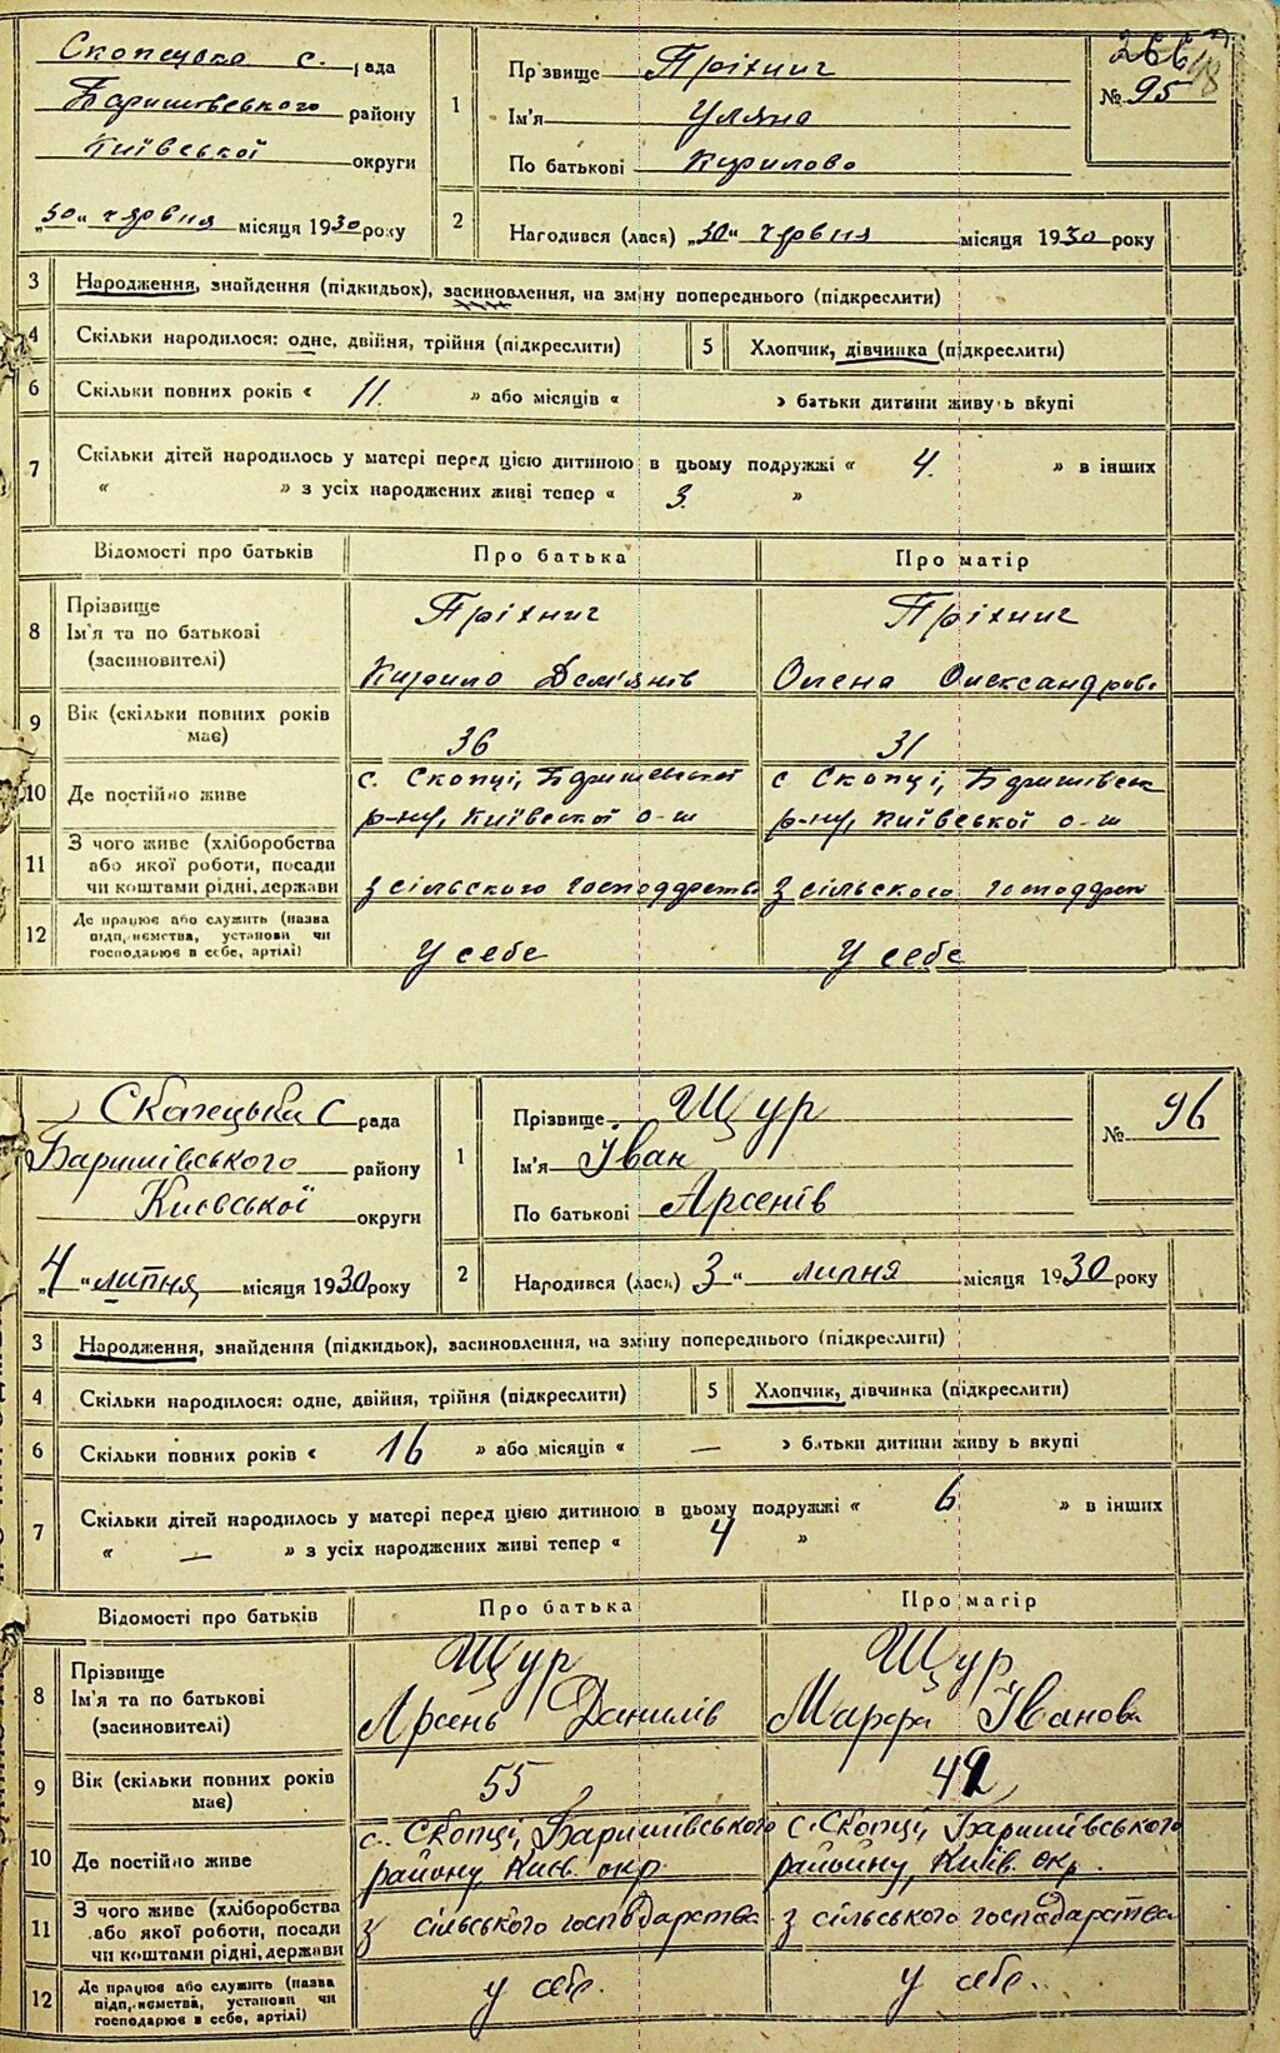 Скопецька с. рада
Баришівського району
Київської округи
„30“ червня місяця 1930 року
1
Прізвище Пріхнич
Ім'я Уляна
По батькові Кирилова
266
№ 95
2
Народився (лася) „30“ червня місяця 1930 року
3 Народження, знайдення (підкидьок), засиновлення, на зміну попереднього (підкреслити)
4 Скільки народилося: одне, двійня, трійня (підкреслити) 5 Хлопчик, дівчинка (підкреслити)
6 Скільки повних років « 11. » або місяців « » батьки дитини живуть вкупі
7 Скільки дітей народилось у матері перед цією дитиною в цьому подружжі « 4. » в інших
« » з усіх народжених живі тепер « 3. »
Відомості про батьків Про батька Про матір
8 Прізвище
Ім'я та по батькові
(засиновителі)
Пріхнич
Кирило Дем'янів
Пріхнич
Олена Олександрова
9 Вік (скільки повних років
має)
36
31
10 Де постійно живе
с. Скопці, Баришівської
р-ну, Київської о-ш
с Скопці, Баришівськ
р-ну, Київської о-ш
11 З чого живе (хліборобства
або якої роботи, посади
чи коштами рідні, держави
З сільського господарства
З сільського господарст
12 Де працює або служить (назва
підприємства, установи чи
господарює в себе, артілі)
У себе
У себе
Скопецька с рада
Баришівського району
Києвської округи
„4“ липня місяця 1930 року
1
Прізвище Щур
Ім'я Іван
По батькові Арсенів
№ 96
2
Народився (лася) „3“ липня місяця 1930 року
3 Народження, знайдення (підкидьок), засиновлення, на зміну попереднього (підкреслити)
4 Скільки народилося: одне, двійня, трійня (підкреслити) 5 Хлопчик, дівчинка (підкреслити)
6 Скільки повних років « 16 » або місяців « — » батьки дитини живуть вкупі
7 Скільки дітей народилось у матері перед цією дитиною в цьому подружжі « 6 » в інших
« — » з усіх народжених живі тепер « 4 »
Відомості про батьків Про батька Про матір
8 Прізвище
Ім'я та по батькові
(засиновителі)
Щур
Арсень Данилів
Щур
Марфа Іванова
9 Вік (скільки повних років
має)
55
42
10 Де постійно живе
с. Скопці, Баришівського
району, Києв. окр.
с. Скопці, Баришівського
району, Київ. окр.
11 З чого живе (хліборобства
або якої роботи, посади
чи коштами рідні, держави
З сільського господарства
З сільського господарства
12 Де працює або служить (назва
підприємства, установи чи
господарює в себе, артілі)
у себе.
у себе.